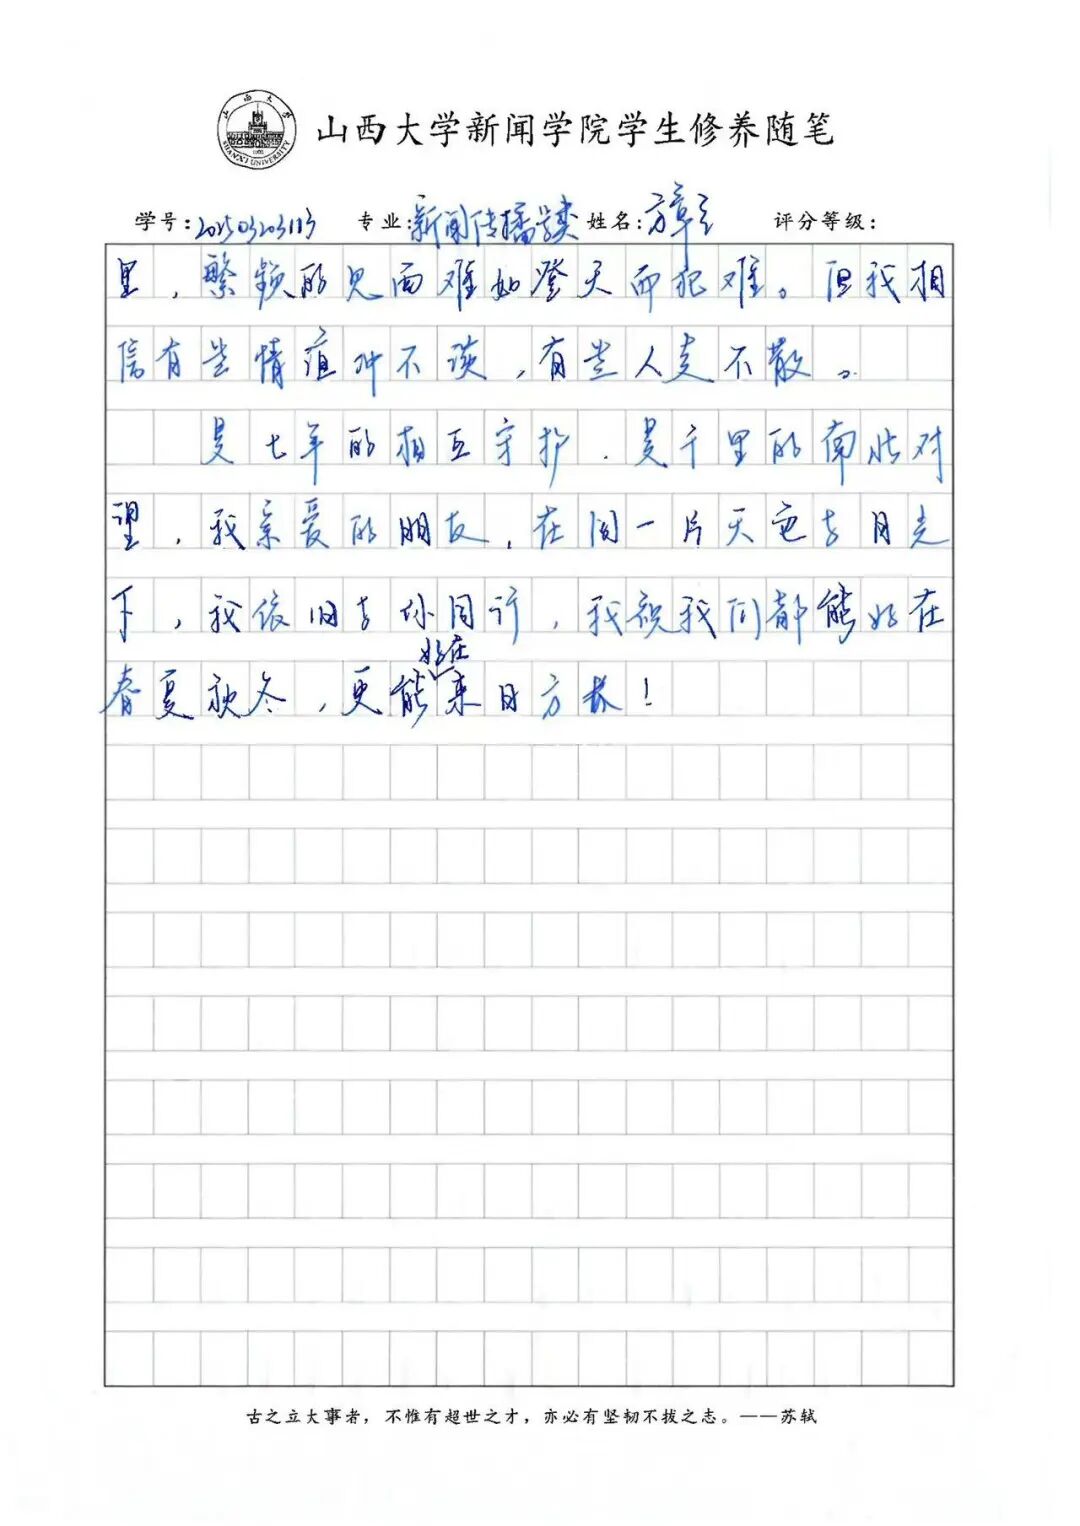 山西大学新闻学院学生修养随笔
学号:202503203113 专业:新闻传播学类 姓名:方章立 评分等级:
里，繁频的见面难如登天而犯难。但我相
信有些情谊冲不淡，有些人走不散。
是七年的相互守护．是千里的南北对
望，我亲爱的朋友，在同一片天空与月光
下，我依旧与你同行，我祝我们都能好在
春夏秋冬，更能好在来日方长！
古之立大事者，不惟有超世之才，亦必有坚韧不拔之志。——苏轼
山西大学
SHANXI UNIVERSITY
1902